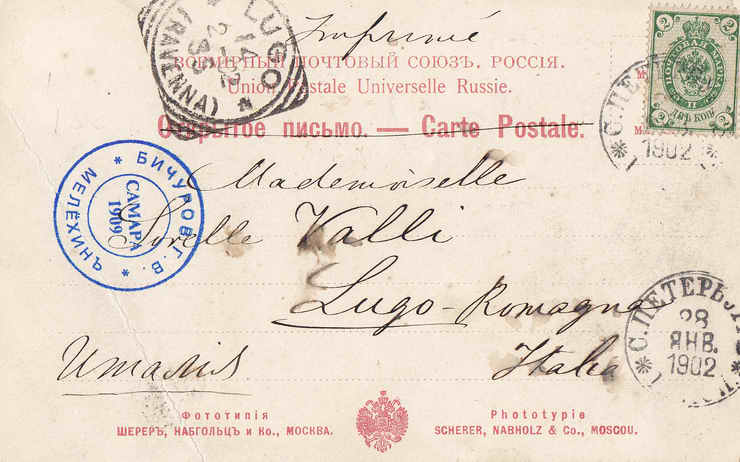 Imprimé
ВСЕМІРНЫЙ ПОЧТОВЫЙ СОЮЗЪ. РОССІЯ.
Union Postale Universelle Russie.
Открытое письмо. — Carte Postale.
LUGO
(RAVENNA)
2
2
ПОЧТОВАЯ МАРКА
ДВѢ КОП.
1902
БИЧУРОВ Г. В.
МЕЛЁХИНЪ
САМАРА
1909
Mademoiselle
Sorelle Valli
Lugo - Romagna
Italia
Италія
С.ПЕТЕРБУРГ
28
ЯНВ.
1902
Фототипія
ШЕРЕРЪ, НАБГОЛЬЦЪ и Ко., МОСКВА.
Phototypie
SCHERER, NABHOLZ & Co., MOSCOU.